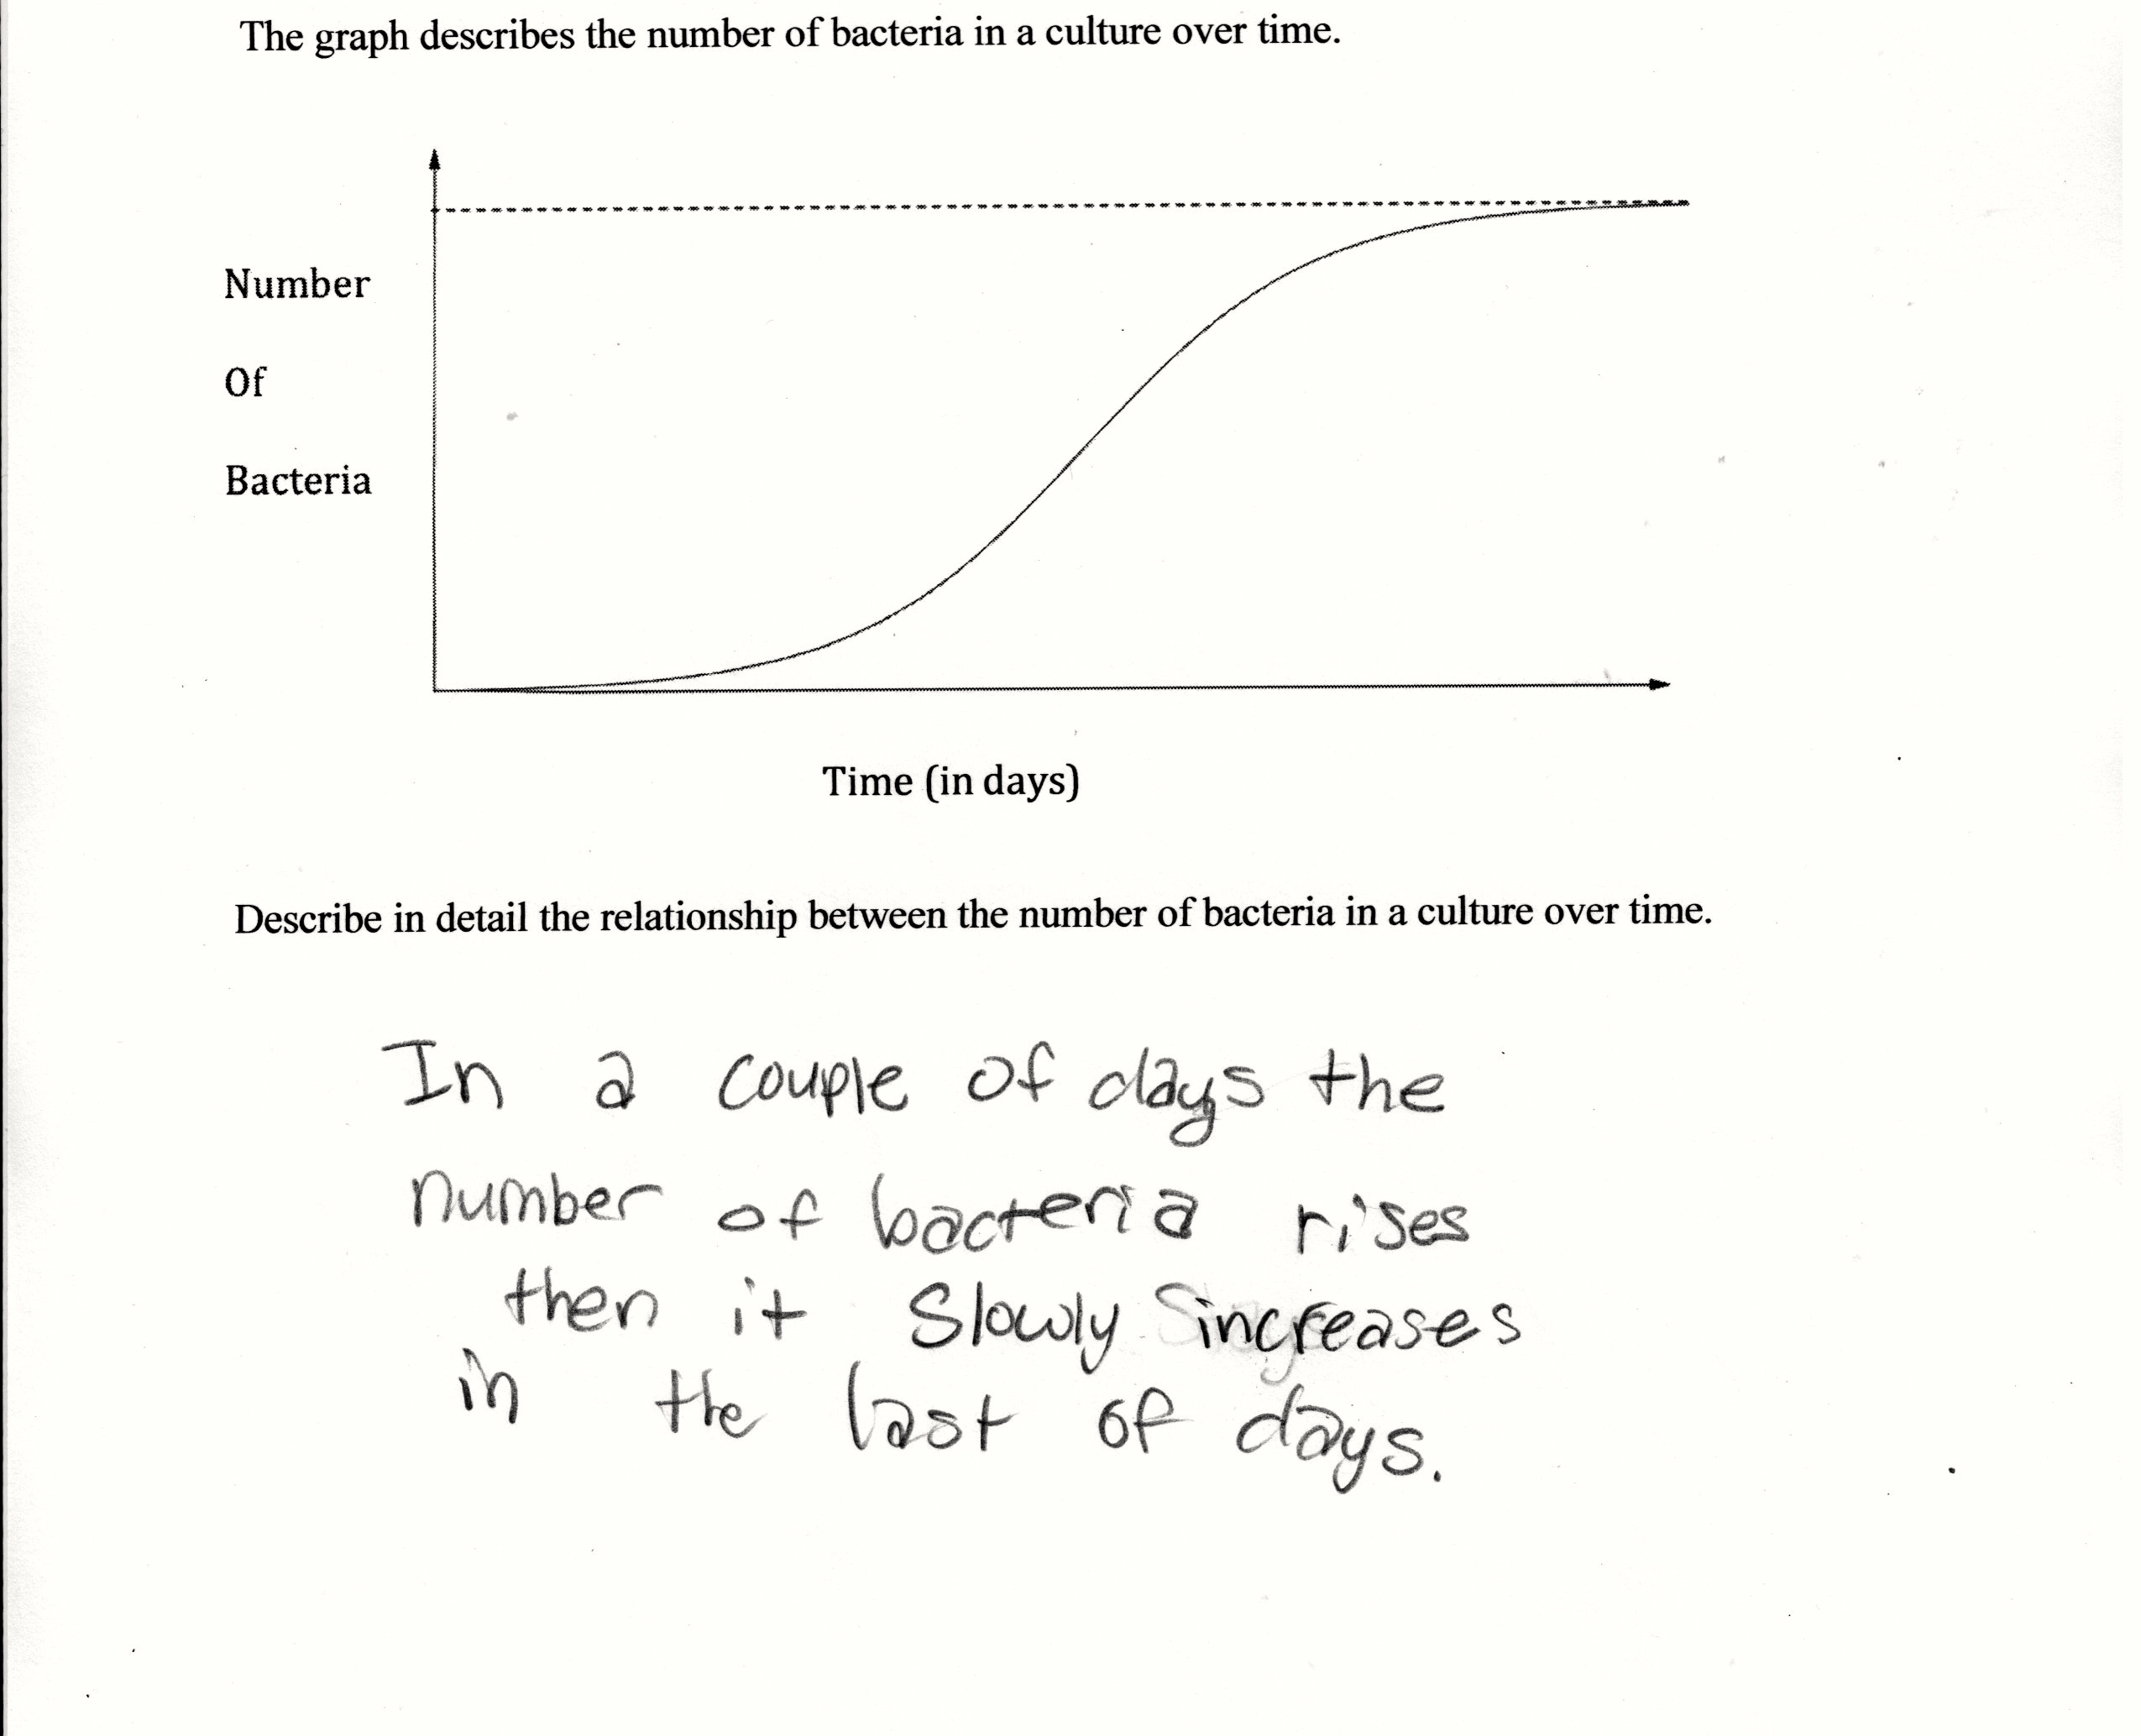 The graph describes the number of bacteria in a culture over time.
Number
Of
Bacteria
Time (in days)
Describe in detail the relationship between the number of bacteria in a culture over time.
In a couple of days the
number of bacteria rises
then it slowly increases
in the last of days.